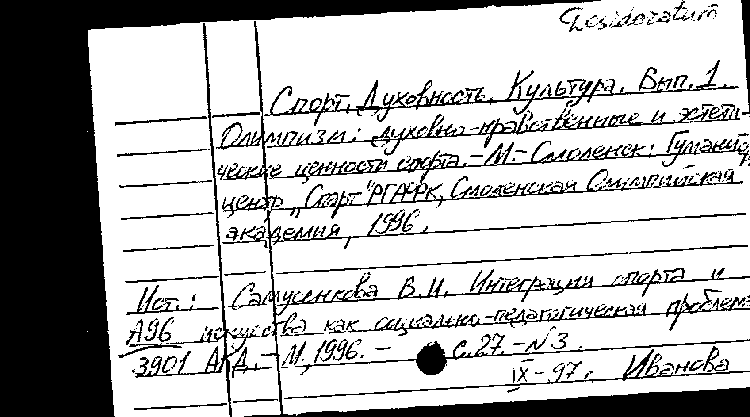 Desidoratum
Спорт. Духовность. Культура. Вып. 1.
Олимпизм: духовно-нравственные и эстети-
ческие ценности спорта. - М. - Смоленск: Гуманитар
центр "Спорт" РГАФК, Смоленская Олимпийская
академия, 1996.
Ист.: Самусенкова В.И. Интеграции спорта и
А96 искусства как социально-педагогическая проблема
3901 АКД. - М., 1996. - с. 27. - N3.
IX - 97. Иванова